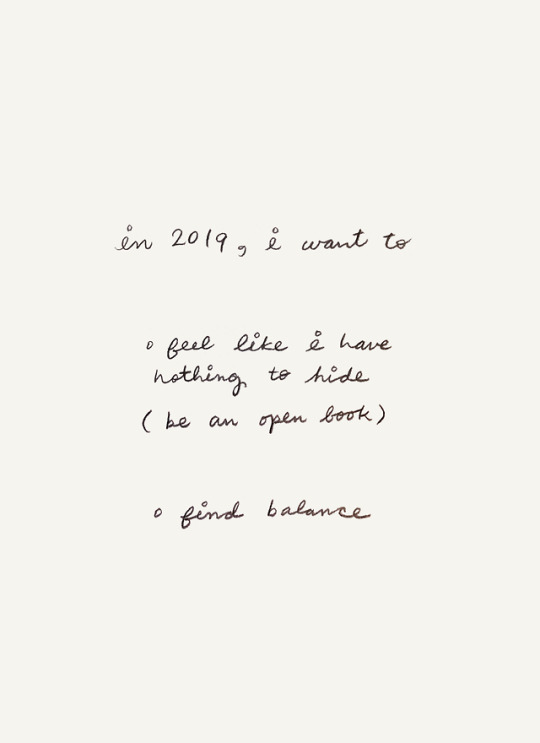 in 2019, i want to
o feel like i have
nothing to hide
(be an open book)
o find balance